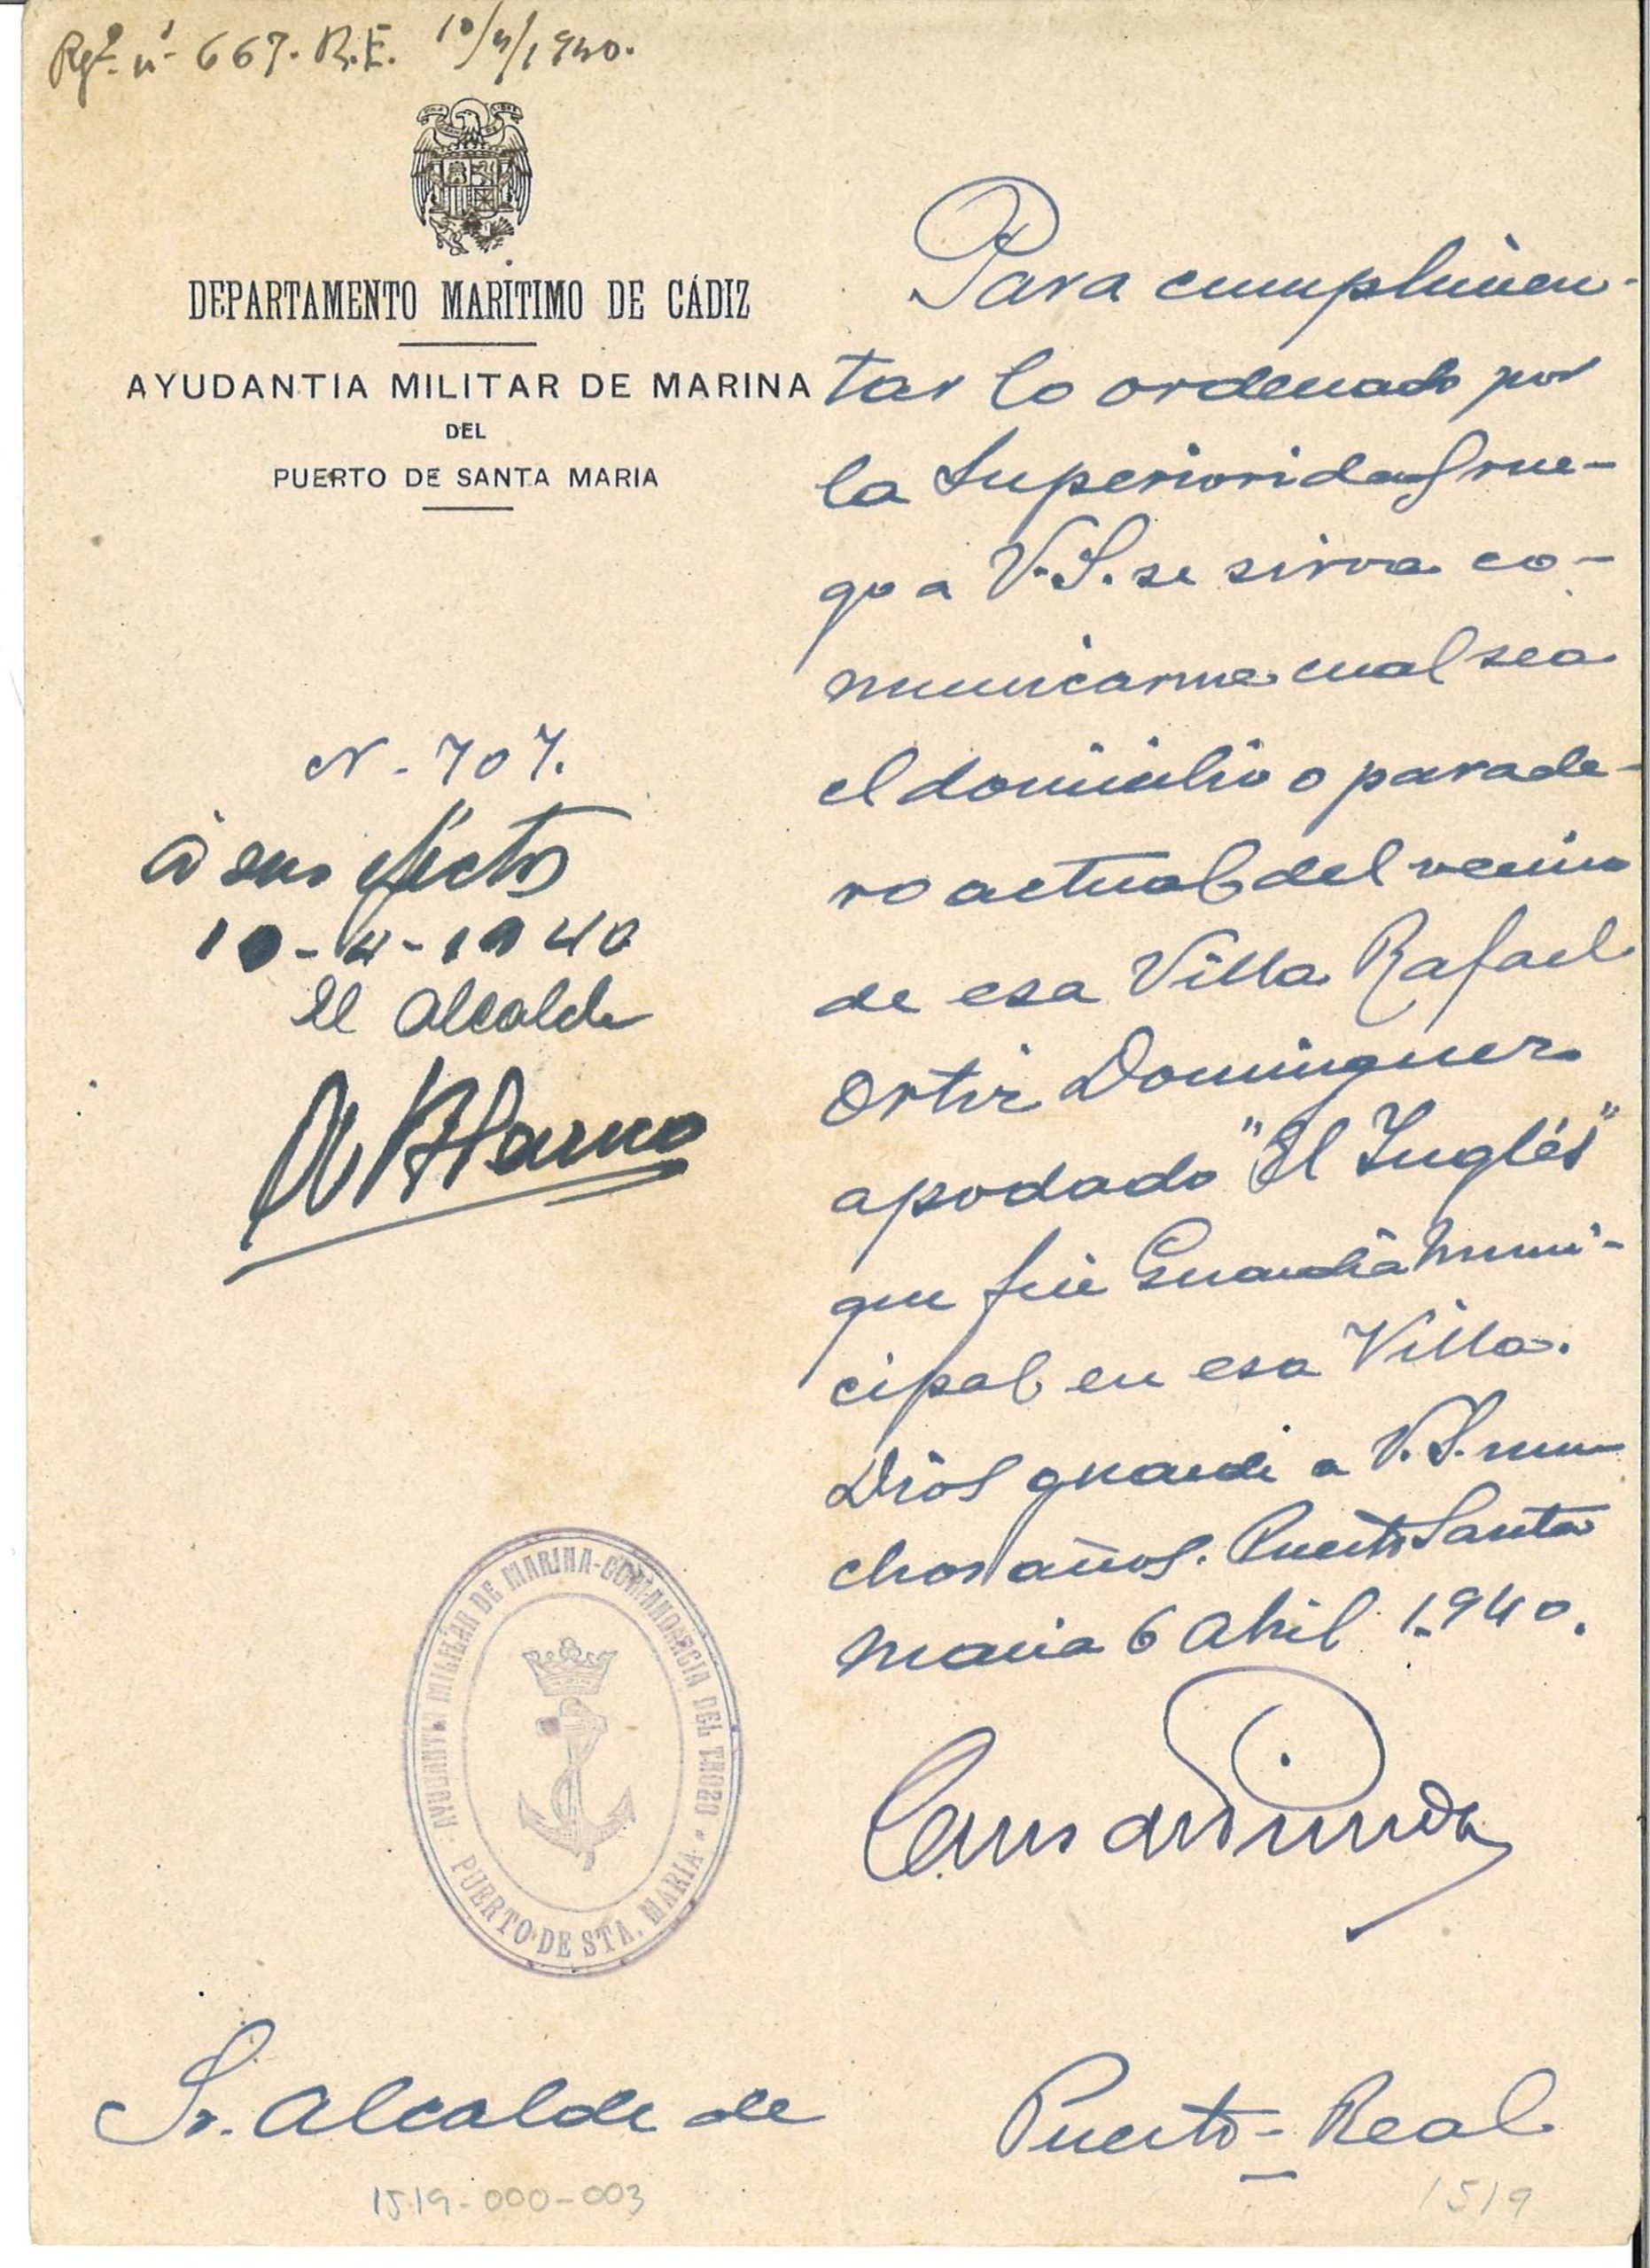 Rgº nº 667. R.E. 10/4/1940.
DEPARTAMENTO MARÍTIMO DE CÁDIZ
AYUDANTIA MILITAR DE MARINA
DEL
PUERTO DE SANTA MARIA
N. 707.
A sus efectos
10-4-1940
El Alcalde
Para cumplimen-
tar lo ordenado por
la Superioridad rue-
go a V.S. se sirva co-
municarme cual sea
el domicilio o parade-
ro actual del vecino
de esa Villa Rafael
Ortiz Dominguez
apodado "El Inglés"
que fué Guardia Muni-
cipal en esa Villa.
Dios guarde a V.S. mu-
chos años. Puerto Santa
Maria 6 Abril 1.940.
AYUDANTIA MILITAR DE MARINA-COMANDANCIA DEL TROZO
PUERTO DE STA. MARIA
Sr. Alcalde de Puerto-Real
1519-000-003
1519